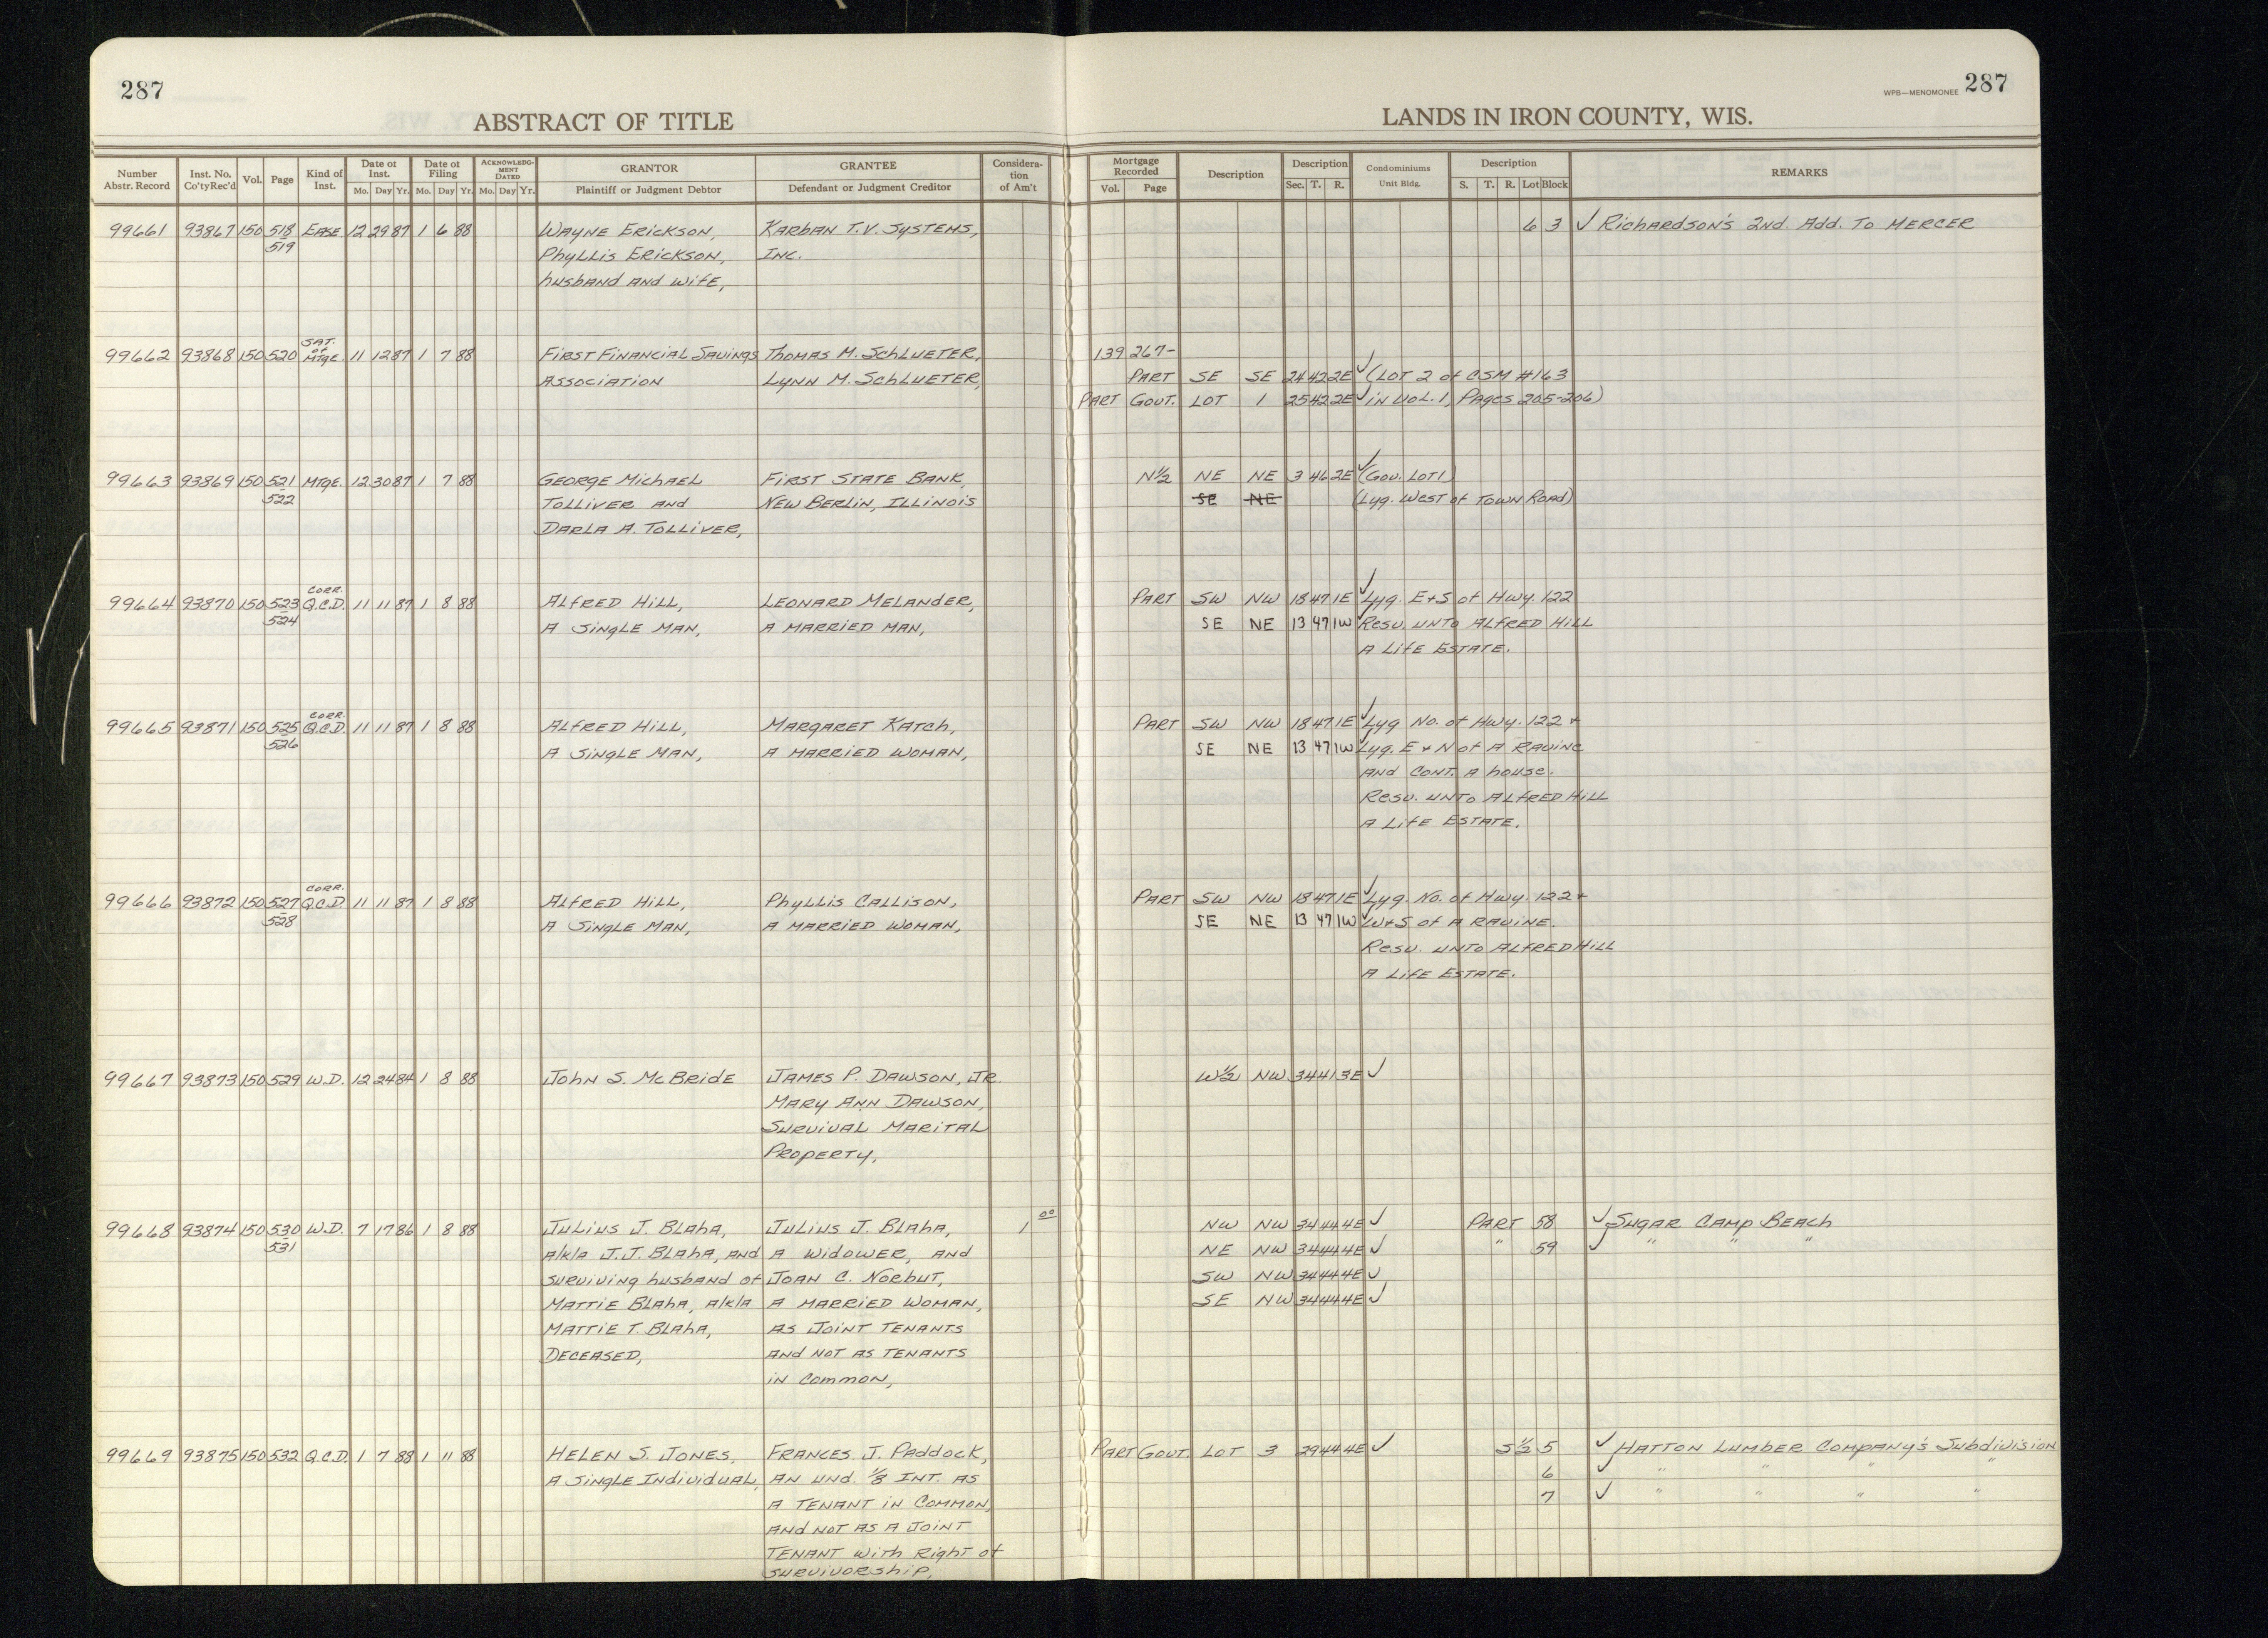 287
ABSTRACT OF TITLE
Number Abstr. Record Inst. No. Co'tyRec'd Vol. Page Kind of Inst. Date of Inst. Mo. Day Yr. Date of Filing Mo. Day Yr. ACKNOWLEDGMENT DATED Mo. Day Yr. GRANTOR Plaintiff or Judgment Debtor GRANTEE Defendant or Judgment Creditor Considera-tion of Am't
99661 93867 150 518 EASE 12 29 87 1 6 88 WAYNE ERICKSON, KARBAN T.V. SYSTEMS,
519 PHYLLIS ERICKSON, INC.
husband AND wife,
SAT. of
99662 93868 150 520 MTGE. 11 12 87 1 7 88 FIRST FINANCIAL SAVINGS THOMAS M. SCHLUETER,
ASSOCIATION LYNN M. SCHLUETER,
99663 93869 150 521 MTGE. 12 30 87 1 7 88 GEORGE MICHAEL FIRST STATE BANK,
522 TOLLIVER AND NEW BERLIN, ILLINOIS
DARLA A. TOLLIVER,
CORR.
99664 93870 150 523 Q.C.D. 11 11 87 1 8 88 ALFRED HILL, LEONARD MELANDER,
524 A SINGLE MAN, A MARRIED MAN,
CORR.
99665 93871 150 525 Q.C.D. 11 11 87 1 8 88 ALFRED HILL, MARGARET KATCH,
526 A SINGLE MAN, A MARRIED WOMAN,
CORR.
99666 93872 150 527 Q.C.D. 11 11 87 1 8 88 ALFRED HILL, PHYLLIS CALLISON,
528 A SINGLE MAN, A MARRIED WOMAN,
99667 93873 150 529 W.D. 12 24 84 1 8 88 JOHN S. McBRIDE JAMES P. DAWSON, JR.
MARY ANN DAWSON,
SURVIVAL MARITAL
PROPERTY,
99668 93874 150 530 W.D. 7 17 86 1 8 88 JULIUS J. BLAHA, JULIUS J. BLAHA, 1 00
531 a/k/a J.J. BLAHA, AND A WIDOWER, AND
SURVIVING husband of JOAN C. NORBUT,
MATTIE BLAHA, a/k/a A MARRIED WOMAN,
MATTIE T. BLAHA, AS JOINT TENANTS
DECEASED, AND NOT AS TENANTS
IN COMMON,
99669 93875 150 532 Q.C.D. 1 7 88 1 11 88 HELEN S. JONES, FRANCES J. PADDOCK,
A SINGLE INDIVIDUAL, AN UND. 1/8 INT. AS
A TENANT IN COMMON,
AND NOT AS A JOINT
TENANT WITH RIGHT OF
SURVIVORSHIP,
WPB—MENOMONEE 287
LANDS IN IRON COUNTY, WIS.
Mortgage Recorded Vol. Page Description Description Sec. T. R. Condominiums Unit Bldg. Description S. T. R. Lot Block REMARKS
6 3 ✓ RICHARDSON'S 2ND. ADD. TO MERCER
139 267-
PART SE SE 24 42 2E ✓ (LOT 2 of CSM #163
PART GOUT. LOT 1 25 42 2E ✓ IN VOL. 1, PAGES 205-206)
N½ NE NE 3 46 2E ✓ (GOV. LOT 1)
SE NE (Lyg. WEST of TOWN ROAD)
PART SW NW 18 47 1E ✓ Lyg. E+S of Hwy. 122
SE NE 13 47 1W ✓ RESV. UNTO ALFRED HILL
A LIFE ESTATE.
PART SW NW 18 47 1E ✓ Lyg No. of Hwy. 122 +
SE NE 13 47 1W ✓ Lyg. E + N of A RAVINE
AND CONT. A house.
RESV. UNTO ALFRED HILL
A LIFE ESTATE.
PART SW NW 18 47 1E ✓ Lyg. No. of Hwy. 122 +
SE NE 13 47 1W ✓ W+S of A RAVINE.
RESV. UNTO ALFRED HILL
A LIFE ESTATE.
W½ NW 34 41 3E ✓
NW NW 34 44 4E ✓ PART 58 ✓ SUGAR CAMP BEACH
NE NW 34 44 4E ✓ " 59 ✓ " " "
SW NW 34 44 4E ✓
SE NW 34 44 4E ✓
PART GOUT. LOT 3 29 44 4E ✓ S½ 5 ✓ HATTON LUMBER COMPANY'S SUBDIVISION
6 ✓ " " " "
7 ✓ " " " "